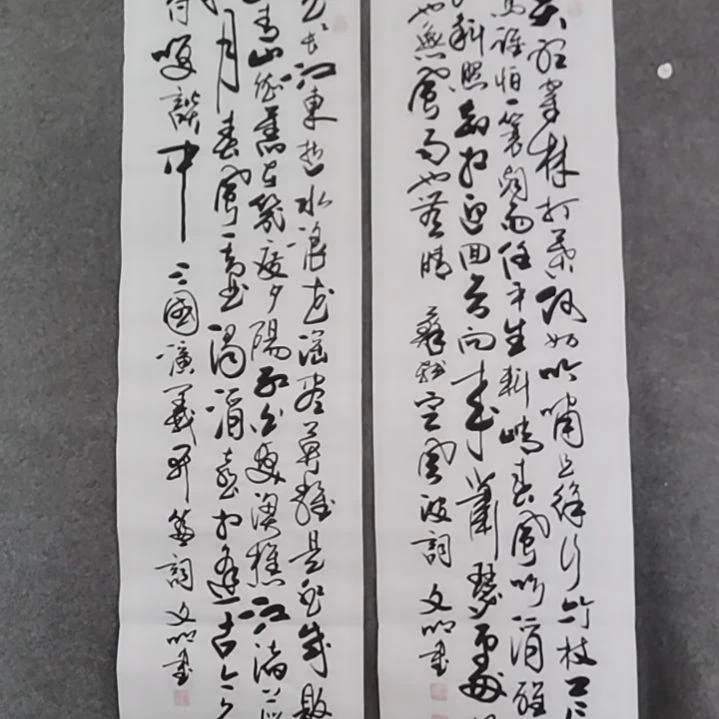 聽穿林打葉何妨吟嘯且徐行竹杖芒
馬誰怕一蓑烟雨任平生料峭春風吹酒醒
斜照却相迎回首向來蕭瑟處
也無風雨也無晴 蘇軾定風波詞 文明書
長江東逝水浪花淘盡英雄是非成敗
青山依舊在幾度夕陽紅白髮漁樵江渚上
月春風一壺濁酒喜相逢古今多
付笑談中 三國演義開篇詞 文明書